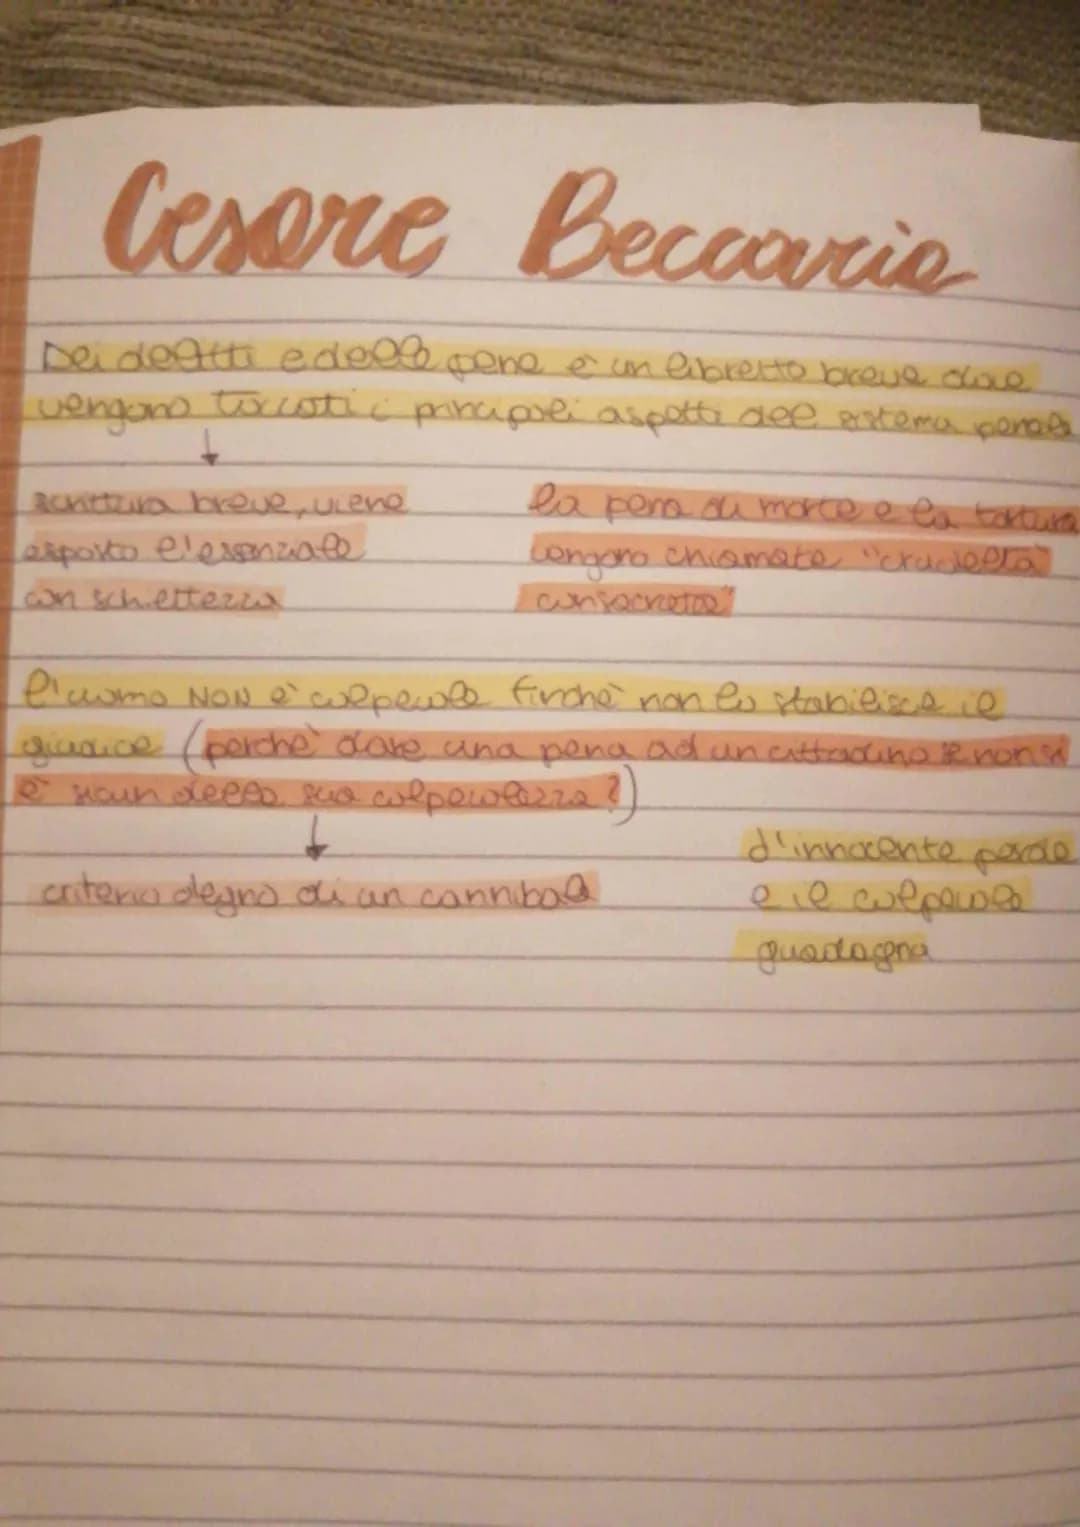 Cesare Beccaria
Dei delitti e delle pene è un libretto breve dove
vengono toccati i principali aspetti del sistema penale
scrittura breve, viene
esposto l'essenziale
con schiettezza
la pena di morte e la tortura
vengono chiamate "crudeltà
consacrate"
l'uomo NON è colpevole finchè non lo stabilisce il
giudice (perchè dare una pena ad un cittadino se non si
è sicuri della sua colpevolezza?)
criterio degno di un cannibale
l'innocente perde
e il colpevole
guadagna